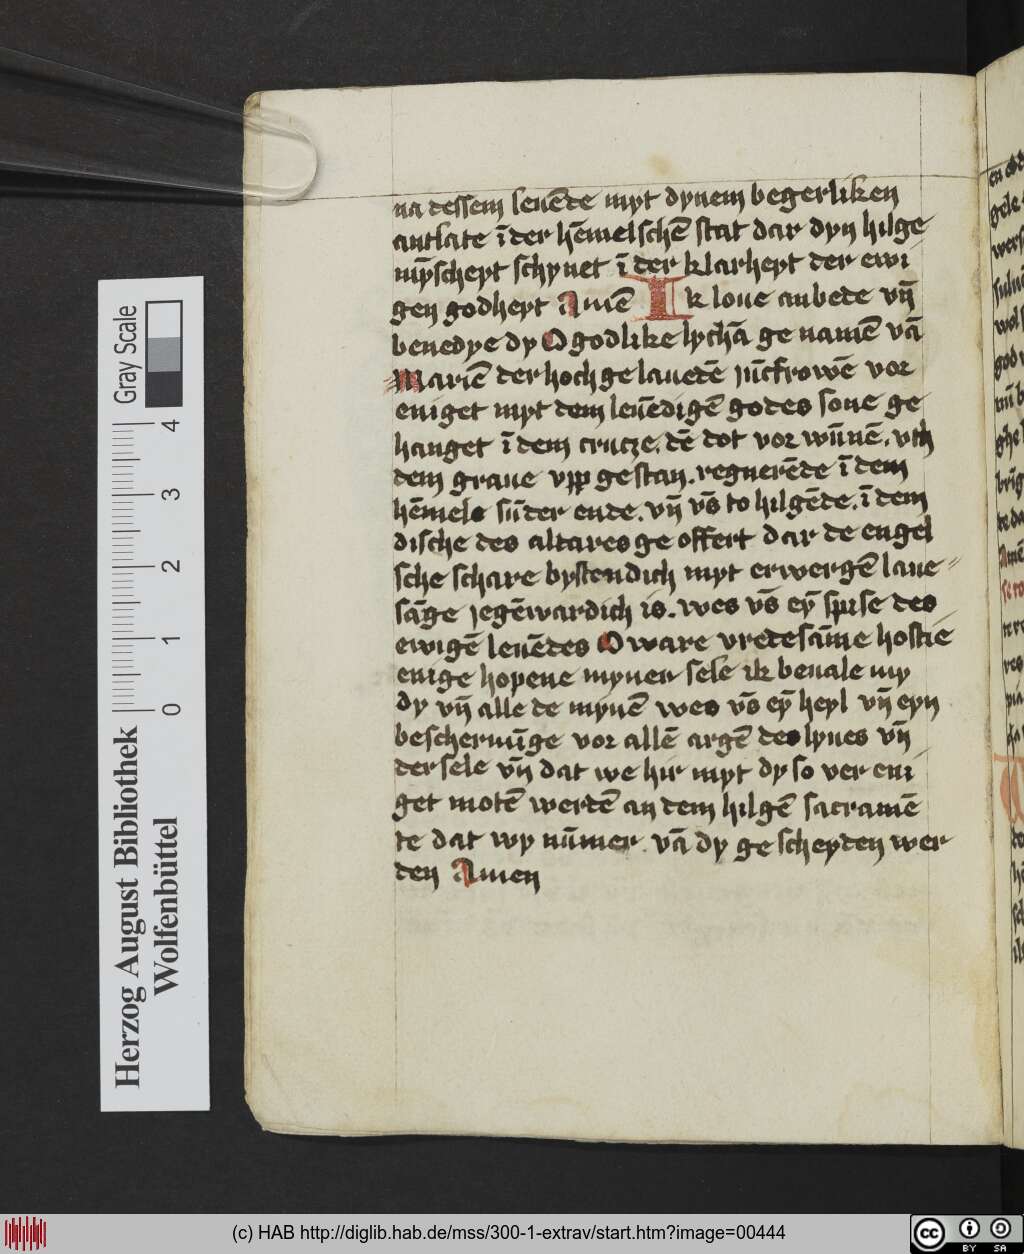 na dessem leuēde myt dynem begerliken
antlate ī der hēmelschē stat dar dyn hilge
mȳscheyt schynet ī der klarheyt der ewi
gen godheyt Amē Ik loue anbede vn̄
benedye dy O godlike lychā ge namē vā
Mariē der hoch ge lauedē jūcfrowē vor
eniget myt dem leuēdigē godes sone ge
hanget ī dem crucze. dē dot vor wūnē. vth
dem graue vpp ge stan. regnerēde ī dem
hēmele sūder ende. vn̄ vs̄ to hilgēde. ī dem
dische des altares ge offert dar de engel
sche schare bystendich myt erwergē laue
sāge jegēwardich is. wes vs̄ eȳ spise des
ewigē leuēdes O ware vredesāme hostie
enige hopene myner sele ik beuale my
dy vn̄ alle de mynē wes vs̄ eȳ heyl vn̄ eyn
beschermīge vor allē argē des lyues vn̄
der sele vn̄ dat we hir myt dy so ver eni
get motē werdē an dem hilgē sacramē
te dat wy nūmer vā dy ge scheyden wer
den Amen
Gray Scale
0 1 2 3 4
Herzog August Bibliothek
Wolfenbüttel
(c) HAB http://diglib.hab.de/mss/300-1-extrav/start.htm?image=00444
cc BY SA